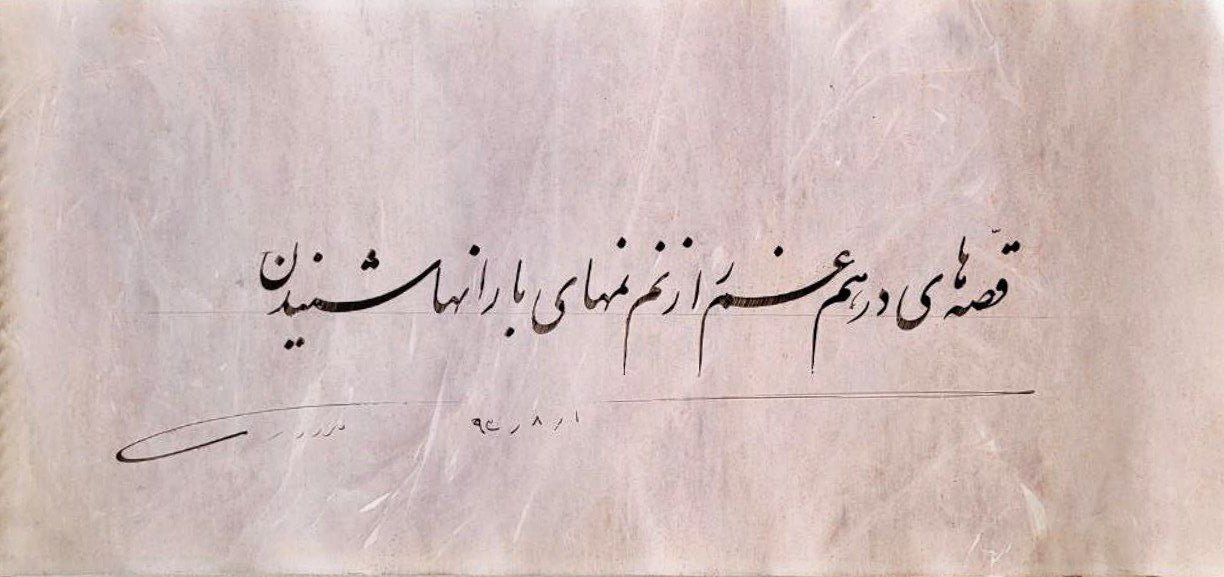 قصّه های درهم غم را ز نم نمهای بارانها شنیدن
۱ر۸ر۹۴